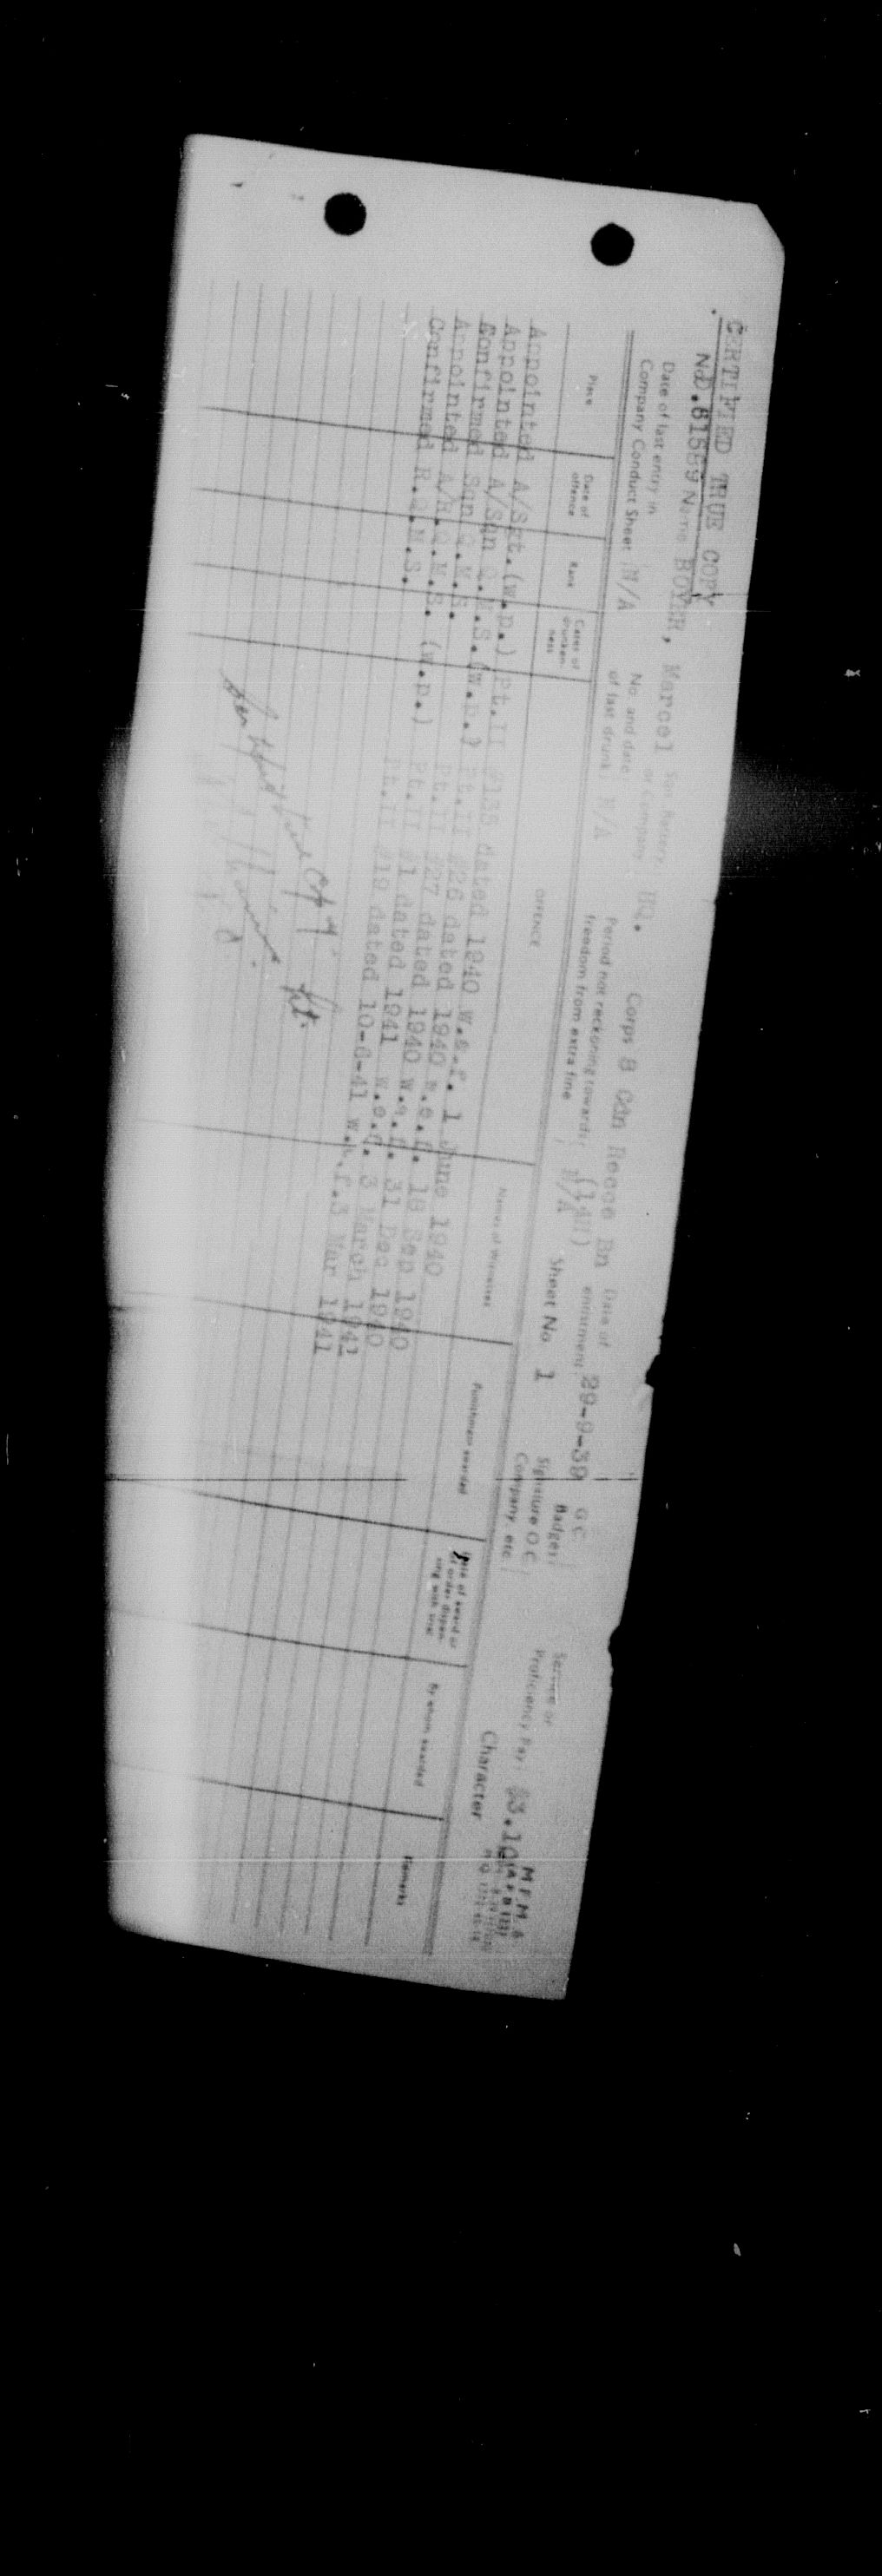 CERTIFIED TRUE COPY
No D.61569 Name BOYER, Marcel Sqn Battery or Company HQ. Corps 8 Cdn Recce Bn (14H) Date of enlistment 29-9-39 G C Badges Service or Proficiency Pay $3.10 M F M 6
Date of last entry in Company Conduct Sheet N/A No and date of last drunk N/A Period not reckoning towards freedom from extra fine N/A Sheet No 1 Signature O C Company, etc Character
Place Date of offence Rank Cases of drunkenness OFFENCE Names of Witnesses Punishment awarded Date of award or of order dispensing with trial By whom awarded Remarks
Appointed A/Sgt.(w.p.) Pt.II #135 dated 1940 w.e.f. 1 June 1940
Appointed A/Sqn Q.M.S.(w.p.) Pt.II #26 dated 1940 w.e.f. 18 Sep 1940
Confirmed Sqn Q.M.S. Pt.II #27 dated 1940 w.e.f. 31 Dec 1940
Appointed A/R.Q.M.S. (w.p.) Pt.II #1 dated 1941 w.e.f. 3 March 1941
Confirmed R.Q.M.S. Pt.II #19 dated 10-6-41 w.e.f. 3 Mar 1941